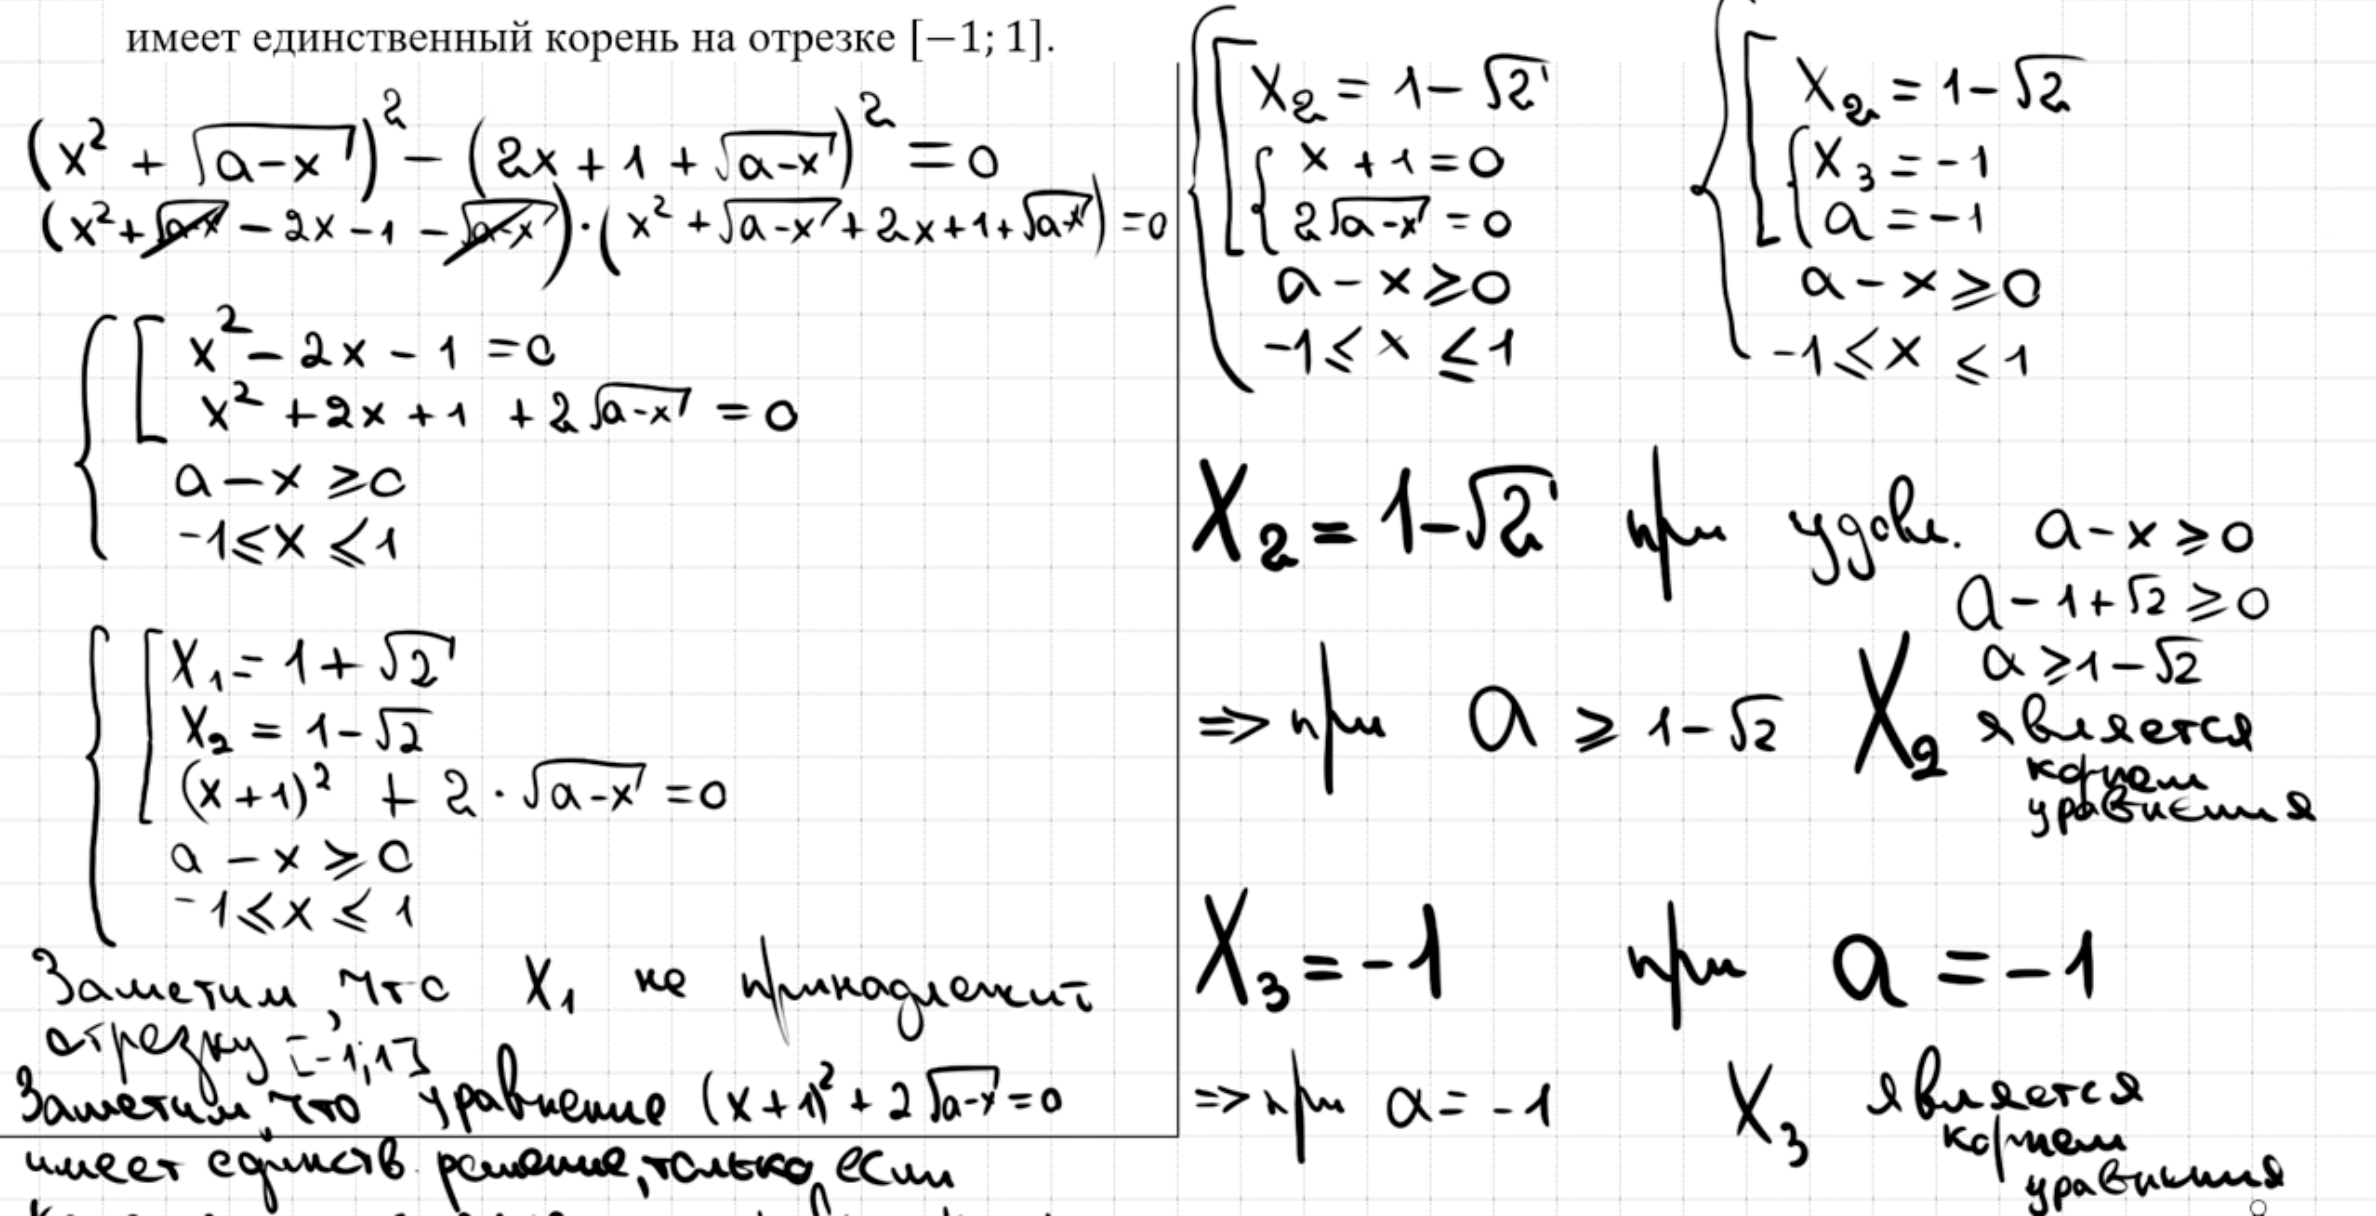 имеет единственный корень на отрезке [−1; 1].
(x² + √(a−x))² − (2x + 1 + √(a−x))² = 0
(x² + √(a−x) − 2x − 1 − √(a−x)) · (x² + √(a−x) + 2x + 1 + √(a−x)) = 0
x² − 2x − 1 = 0
x² + 2x + 1 + 2√(a−x) = 0
a − x ⩾ 0
−1 ⩽ x ⩽ 1
x₁ = 1 + √2
x₂ = 1 − √2
(x + 1)² + 2 · √(a−x) = 0
a − x ⩾ 0
−1 ⩽ x ⩽ 1
Заметим, что x₁ не принадлежит
отрезку [−1; 1]
Заметим, что уравнение (x + 1)² + 2√(a−x) = 0
имеет единств. решение, только если
x₂ = 1 − √2
x + 1 = 0
2√(a−x) = 0
a − x ⩾ 0
−1 ⩽ x ⩽ 1
x₂ = 1 − √2
x₃ = −1
a = −1
a − x ⩾ 0
−1 ⩽ x ⩽ 1
x₂ = 1 − √2 при удовл. a − x ⩾ 0
a − 1 + √2 ⩾ 0
a ⩾ 1 − √2
=> при a ⩾ 1 − √2 x₂ является
корнем
уравнения
x₃ = −1 при a = −1
=> при a = −1 x₃ является
корнем
уравнения